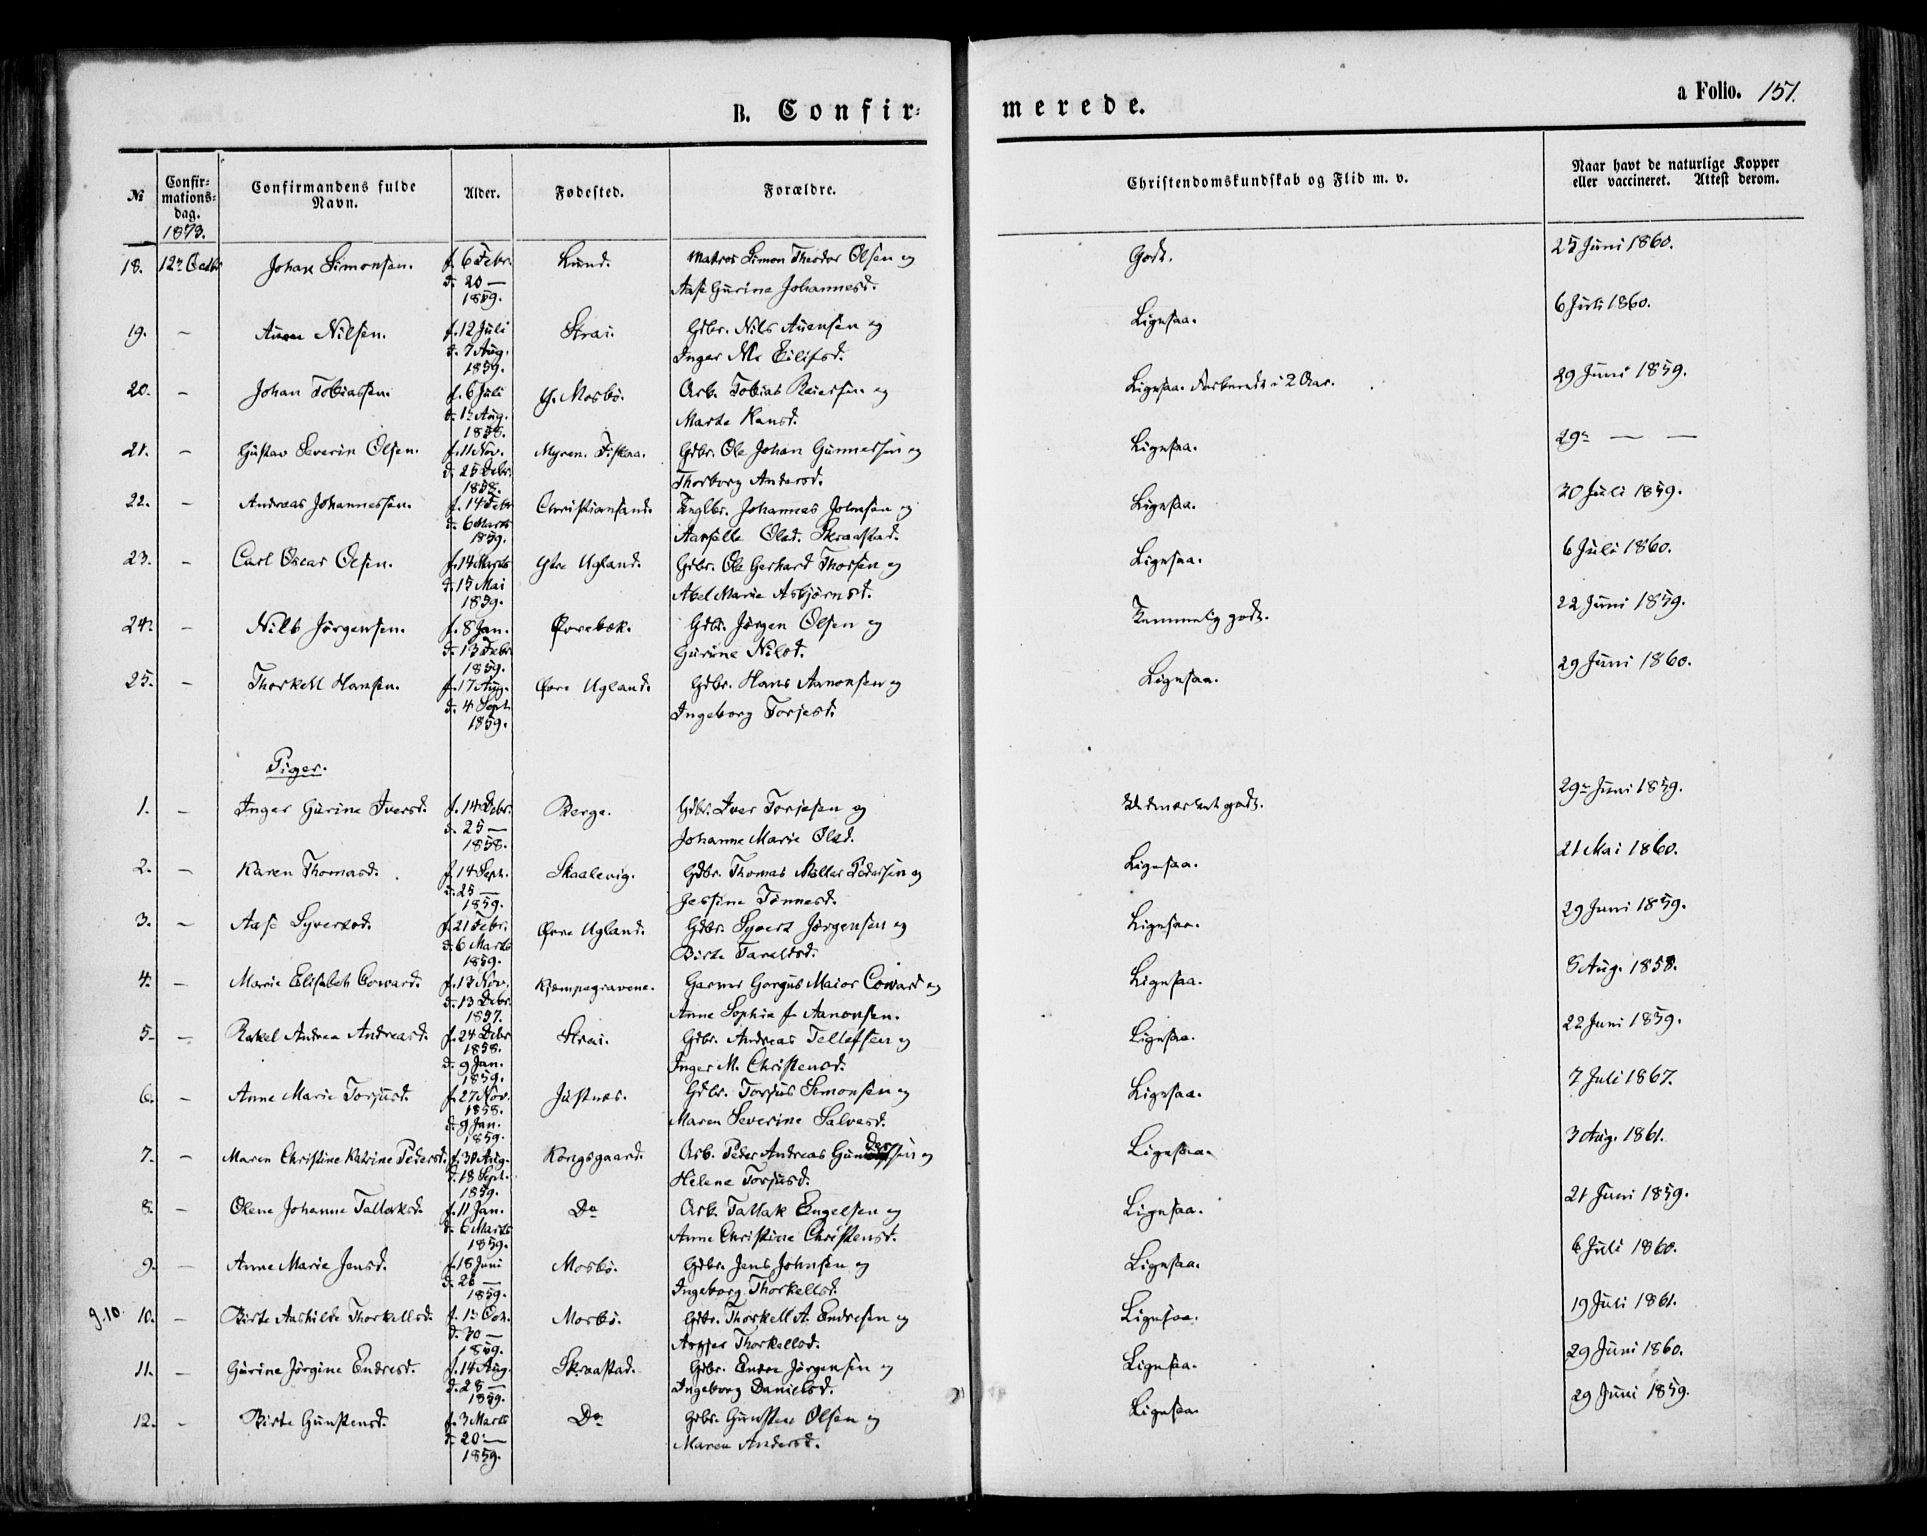 B. Confir- merede.
a Folio. 151.
№ Confirmationsdag. Confirmandens fulde Navn. Alder. Fødested. Forældre. Christendomskundskab og Flid m. v. Naar havt de naturlige Kopper eller vaccineret. Attest derom.
1873.
18. 12te Octbr Johan Simonsen. f. 6 Febr. d. 20 — 1859. Lund. Matros Simon Theodor Olsen og Aase Gurine Johannesd. Godt. 25 Juni 1860.
19. – Auen Nilsen. f. 12 Juli d. 7 Aug. 1859. Strai. Gdbr. Nils Auensen og Inger M. Eilifsd. Ligesaa. 6 Juli 1860.
20. – Johan Tobiassen. f. 6 Juli d. 1te Aug. 1858. Mosbö. Arb. Tobias Reiersen og Marte Kansd. Ligesaa. Forberedt i 2 Aar. 29 Juni 1859.
21. – Gustav Severin Olsen. f. 11 Nov. d. 25 Debr. 1858. Myren. Fiskaa. Gdbr. Ole Johan Gunnersen og Thorborg Andersd. Ligesaa. 29de — —
22. – Andreas Johannessen. f. 14 Febr d. 6 Marts 1859. Christiansand. Johannes Johnsen og Aasille Olsd. Skraastad. Ligesaa. 30 Juli 1859.
23. – Carl Oscar Olsen. f. 14 Marts d. 15 Mai 1859. Ytre Ugland. Gdbr. Ole Gerhard Thorsen og Abel Marie Asbjørnsd. Ligesaa. 6 Juli 1860.
24. – Nils Jørgensen. f. 8 Jan. d. 13 Febr. 1859. Øvrebæk. Gdbr. Jørgen Olsen og Gurine Nilsd. Temmelig godt. 22 Juni 1859.
25. – Thorkell Hansen. f. 17 Aug. d. 4 Sept. 1859. Øvre Ugland. Gdbr. Hans Aanonsen og Ingeborg Torjesd. Ligesaa. 29 Juni 1860.
Piger.
1. – Inger Gurine Iversd. f. 14 Debr. d. 25 — 1858. Berge. Gdbr. Iver Torjesen og Johanne Marie Olsd. Udmærket godt. 29de Juni 1859.
2. – Karen Thomasd. f. 14 Sept. d. 25 — 1859. Skaalevig. Gdbr. Thomas Møller Pedersen og Jessine Tönnesd. Ligesaa. 21 Mai 1860.
3. – Aase Syvertsd. f. 21 Febr. d. 6 Marts 1859. Øvre Ugland. Gdbr. Syvert Jørgensen og Birte Taraldsd. Ligesaa. 29 Juni 1859.
4. – Marie Elisabeth Coward. f. 13 Nov. d. 13 Debr. 1857. Kjempegravene. Garver Gorgus Maior Coward og Anne Sophie f. Aanonsen. Ligesaa. 5 Aug. 1858.
5. – Rakel Andrea Andreasd. f. 24 Debr 1858. d. 9 Jan. 1859. Strai. Gdbr. Andreas Tellefsen og Inger M. Christensd. Ligesaa. 22 Juni 1859.
6. – Anne Marie Torjusd. f. 27 Nov. 1858. d. 9 Jan. 1859. Justnes. Gdbr. Torjus Simonsen og Maren Severine Salvesd. Ligesaa. 7 Juli 1867.
7. – Maren Christine Katrine Pedersd. f. 30 Aug. d. 18 Sept. 1859. Kongsgaard. Arb. Peder Andreas Gundersen og Helene Torjusd. Ligesaa. 3 Aug. 1861.
8. – Olene Johanne Tallaksd. f. 11 Jan. d. 6 Marts 1859. Do Arb. Tallak Engelsen og Anne Christine Christensd. Ligesaa. 21 Juni 1859.
9. – Anne Marie Jensd. f. 18 Juni d. 26 — 1859. Mosbö. Gdbr. Jens Johnsen og Ingeborg Thorkellsd. Ligesaa. 6 Juli 1860.
g. 10. 10. – Birte Aashilde Thorkellsd. f. 13 Oct. d. 30 — 1859. Mosbö. Gdbr. Thorkell A. Endresen og Thorkellsd. Ligesaa. 19 Juli 1861.
11. – Gurine Jörgine Endresd. f. 14 Aug. d. 28 — 1859. Skraastad. Gdbr. Endre Jørgensen og Ingeborg Danielsd. Ligesaa. 29 Juni 1860.
12. – Birte Gunstensd. f. 3 Marts d. 20 — 1859. Do Gdbr. Gunsten Olsen og Maren Andersd. Ligesaa. 29 Juni 1859.